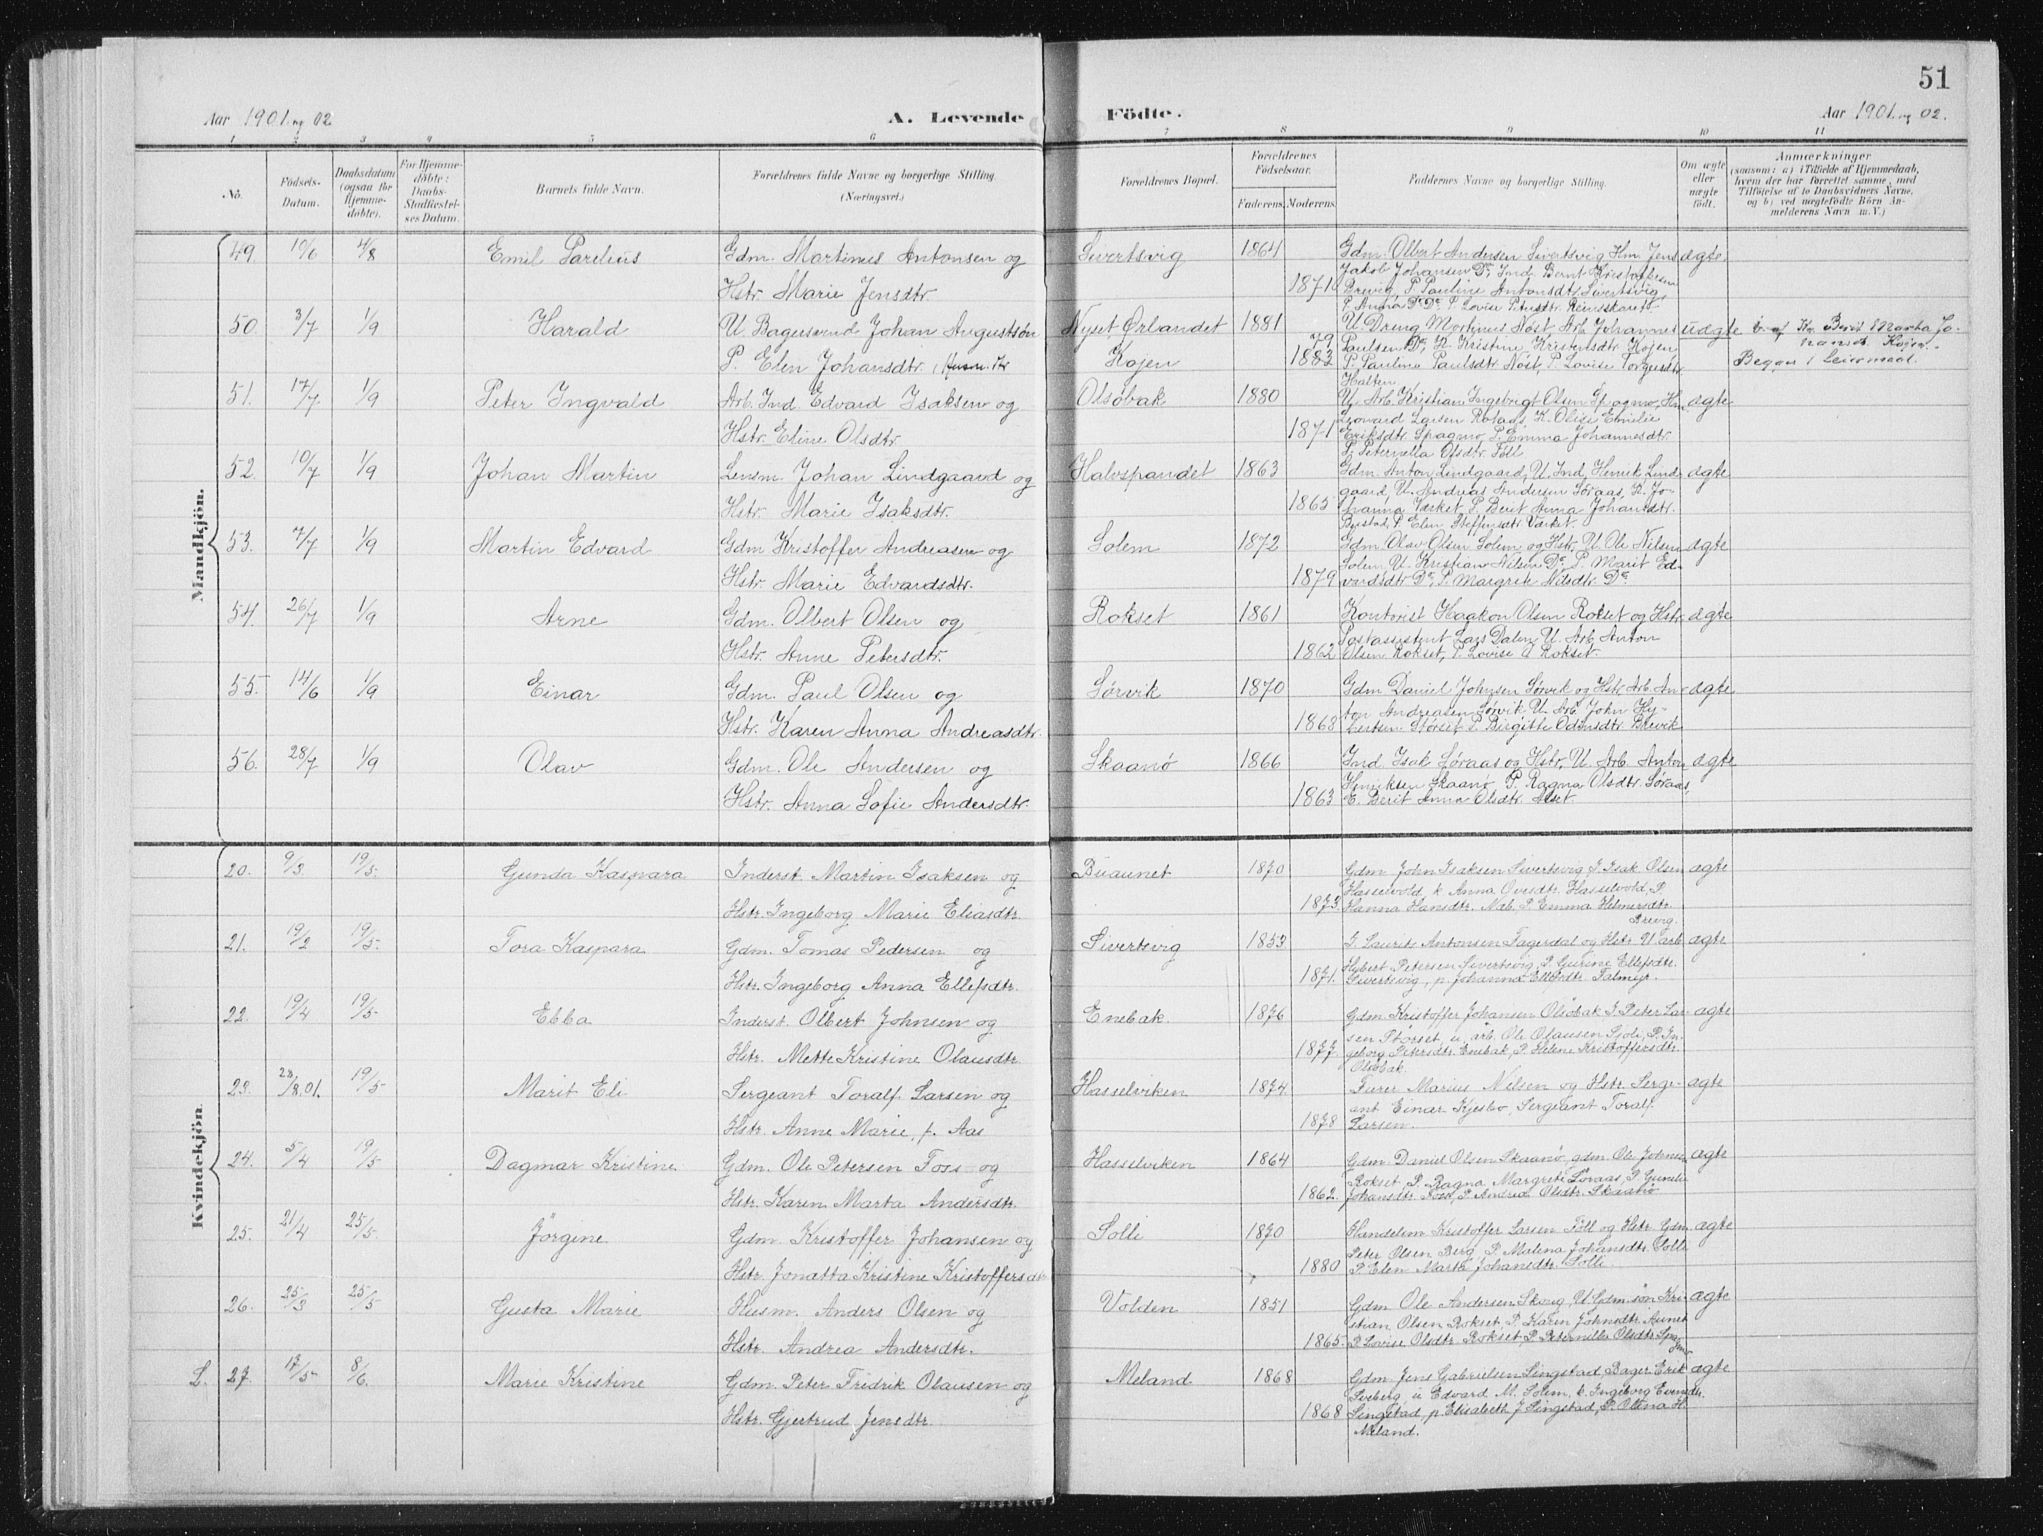 51
Aar 1901 og 02. A. Levende Födte. Aar 1901 og 02.
1 2 3 4 5 6 7 8 9 10 11
No. Födsels-Datum. Daabsdatum (ogsaa for Hjemmedöbte). For Hjemmedöbte: Daabs-Stadfæstelses Datum. Barnets fulde Navn. Forældrenes fulde Navne og borgerlige Stilling. (Næringsvei.) Forældrenes Bopæl. Forældrenes Födselsaar. Faderens. Moderens. Faddernes Navne og borgerlige Stilling. Om ægte eller uægte födt. Anmærkninger (saasom: a) i Tilfælde af Hjemmedaab, hvem der har forrettet samme, med Tilföielse af to Daabsvidners Navne, og b) ved uægtefödte Börn Anmelderens Navn m. V.)
Mandkjön.
49. 10/6 4/8 Emil Parelius Gdm. Martinus Antonsen og Sivertsvig 1864 Gdm. Olbert Andersen Sivertsvig Hm. Jens ægte
Jakob Johansen Do, Ind. Bernt Kristoffersen
Hstr. Marie Jensdtr. 1871 Brevig P. Pauline Antonsdtr. Sivertsvig
P. Anna Do Do P. Lovise Petersdtr. Reinsskaret
50. 3/7 1/9 Harald U. Bagersvend Johan Augustsön Nyset, Ørlandet 1881 U. Dreng Martinus Nöst, Arb. Johannes uægte b. af Kv. Berit Marta Jo-
hansd. Kojen.
P. Elen Johansdtr. Kojen 79 1883 Paulsen Do, K. Kristine Kristensdtr. Kojen Begges 1 Leiermaal.
P. Pauline Paulsdtr. Nöst, P. Lovise Torgersdtr.
Halten.
51. 17/7 1/9 Peter Ingvald Arb. Ind. Edvard Isaksen og Olsöbak 1880 U. Arb. Kristian Ingebrigt Olsen Spagmo, Hm. ægte
Leonard Larsen Rotaas, K. Olise Emilie
Hstr. Eline Olsdtr. 1871 Eriksdtr. Spagmo, P. Emma Johannesdtr.
P. Peternella Olsdtr. Föll
52. 10/7 1/9 Johan Martin Lensm. Johan Lindgaard og Halvspandet 1863 Gdm. Anton Lindgaard, U. Ind. Henrik Lind- ægte
gaard, U. Andreas Andersen Söraas, K. Jo-
Hstr. Marie Isaksdtr. 1865 hanna Værket, P. Berit Anna Johansdtr.
P. Elen Steffensdtr. Værket.
53. 7/7 1/9 Martin Edvard Gdm Kristoffer Andreasen og Solem 1872 Gdm. Olav Olsen Solem og Hstr., U. Ole Nilsen ægte
Solem, U. Kristian Nilsen Do, P. Marit Ed-
Hstr. Marie Edvardsdtr. 1879 vardsdtr Do, P. Margrete Nilsdtr. Do.
54. 26/7 1/9 Arne Gdm. Olbert Olsen og Rokset 1861 Kontorist Haakon Olsen Rokset og Hstr. ægte
Postassistent Lars Dalen, U. Arb. Anton
Hstr. Anne Petersdtr. 1862 Olsen Rokset, P. Lovise O Rokset.
55. 14/6 1/9 Einar Gdm. Paul Olsen og Sørvik 1870 Gdm Daniel Johnsen Sørvik og Hstr. Arb. An- ægte
ton Andreasen Sørvik U. Arb. John Hy-
Hstr. Karen Anna Andreasdtr. 1868 bertsen Störset P. Birgitte Odinsdtr Brevik
56. 28/7 1/9 Olav Gdm. Ole Andersen og Skaanø 1866 Ind. Isak Søraas og Hstr., U. Arb. Anton ægte
Henriksen Skaanø P. Ragna Olsdtr. Søraas,
Hstr. Anna Sofie Andersdtr. 1863 E. Berit Anna Olsdtr. Alset.
Kvindekjön.
20. 9/3 19/5 Gunda Kaspara Inderst. Martin Isaksen og Buaunet 1870 Gdm John Isaksen Sivertsvig I. Isak Olsen ægte
Hasselvold, k Anna Ovesdtr Hasselvold, P.
Hstr. Ingeborg Marie Eliasdtr. 1873 Hanna Hansdtr. P. Emma Helmersdtr.
Brevig.
21. 19/2 19/5 Tora Kaspara Gdm. Tomas Pedersen og Sivertsvig 1853 I. Laurits Antonsen Fagerdal og Hstr. U. arb. ægte
Hybert Petersen Sivertsvig, P. Gurine Ellefsdtr.
Hstr. Ingeborg Anna Ellefsdtr. 1871. Sivertsvig, p. Johanna Ellefsdtr
22. 19/4 19/5 Ebba Inderst. Olbert Johnsen og Enebak. 1876 Gdm Kristoffer Johansen Olsöbak I. Peter Lar- ægte
sen Störset, u. arb. Ole Olausen P. In-
Hstr. Mette Kristine Olausdtr. 1877 geborg Petersdtr. Enebak, P. Helene Kristoffersdtr
Olsöbak.
23. 28/8.01. 19/5 Marit Eli Sergeant Toralf Larsen og Hasselviken 1874 Furer Marius Nilsen og Hstr. Serge- ægte
ant Einar Kjesbo, Sergeant Toralf
Hstr. Anne Marie f. Aas 1878 Larsen.
24. 5/4 19/5 Dagmar Kristine Gdm. Ole Petersen Foss og Hasselviken 1864 Gdm. Daniel Olsen Skaanø, gdm. Ole Johnsen ægte
Rokset, P. Ragna Margrete Söraas, P. Gunda
Hstr. Karen Marta Andersdtr. 1862. Johansdtr. Foss, P. Andrea Olsdtr. Skaanø
25. 21/4 25/5 Jörgine Gdm. Kristoffer Johansen og Solli 1870 Handelsm Kristoffer Larsen Föll og Hstr. Gdm. ægte
Peter Olsen Berg, P. Malena Johansdtr. Solli
Hstr. Jonatta Kristine Kristoffersdtr 1880 P. Elen Marta Johansdtr. Solli.
26. 25/3 25/5 Gusta Marie Husm. Anders Olsen og Volden 1851 Gdm Ole Andersen Skaug, U. Gdm. sön Kri- ægte
stian Olsen Rokset, P. Karen Johnsdtr. Aunet
Hstr. Andrea Andersdtr. 1865. P. Lovise Olsdtr. Rokset, P. Peternille Olsdtr. Spagmo
L. 27. 17/5 8/6. Marie Kristine Gdm. Peter Fridrik Olausen og Meland 1868 Gdm. Jens Gabrielsen Singstad Bager Erik ægte
Soeberg u Edvard M. Solem, k. Ingeborg Evensdtr.
Hstr. Gjertrud Jensdtr. 1868 Singstad, p. Elisabeth J Singstad, P. Oltina H.
Meland.